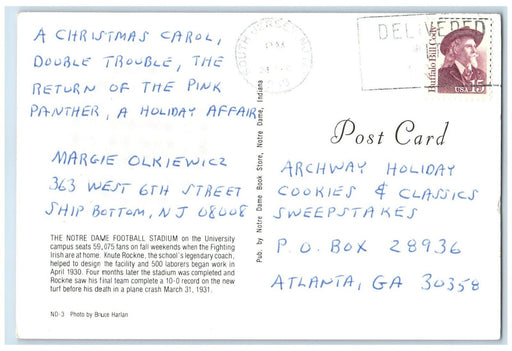 A CHRISTMAS CAROL,
DOUBLE TROUBLE, THE
RETURN OF THE PINK
PANTHER, A HOLIDAY AFFAIR
MARGIE OLKIEWICZ
363 WEST 6TH STREET
SHIP BOTTOM, NJ 08008
THE NOTRE DAME FOOTBALL STADIUM on the University
campus seats 59,075 fans on fall weekends when the Fighting
Irish are at home. Knute Rockne, the school's legendary coach,
helped to design the facility and 500 laborers began work in
April 1930. Four months later the stadium was completed and
Rockne saw his final team complete a 10-0 record on the new
turf before his death in a plane crash March 31, 1931.
ND-3 Photo by Bruce Harlan
Pub. by Notre Dame Book Store, Notre Dame, Indiana
SOUTH JERSEY
DELIVERED
Buffalo Bill Cody
USA 15
Post Card
ARCHWAY HOLIDAY
COOKIES & CLASSICS
SWEEPSTAKES
P.O. BOX 28936
ATLANTA, GA 30358